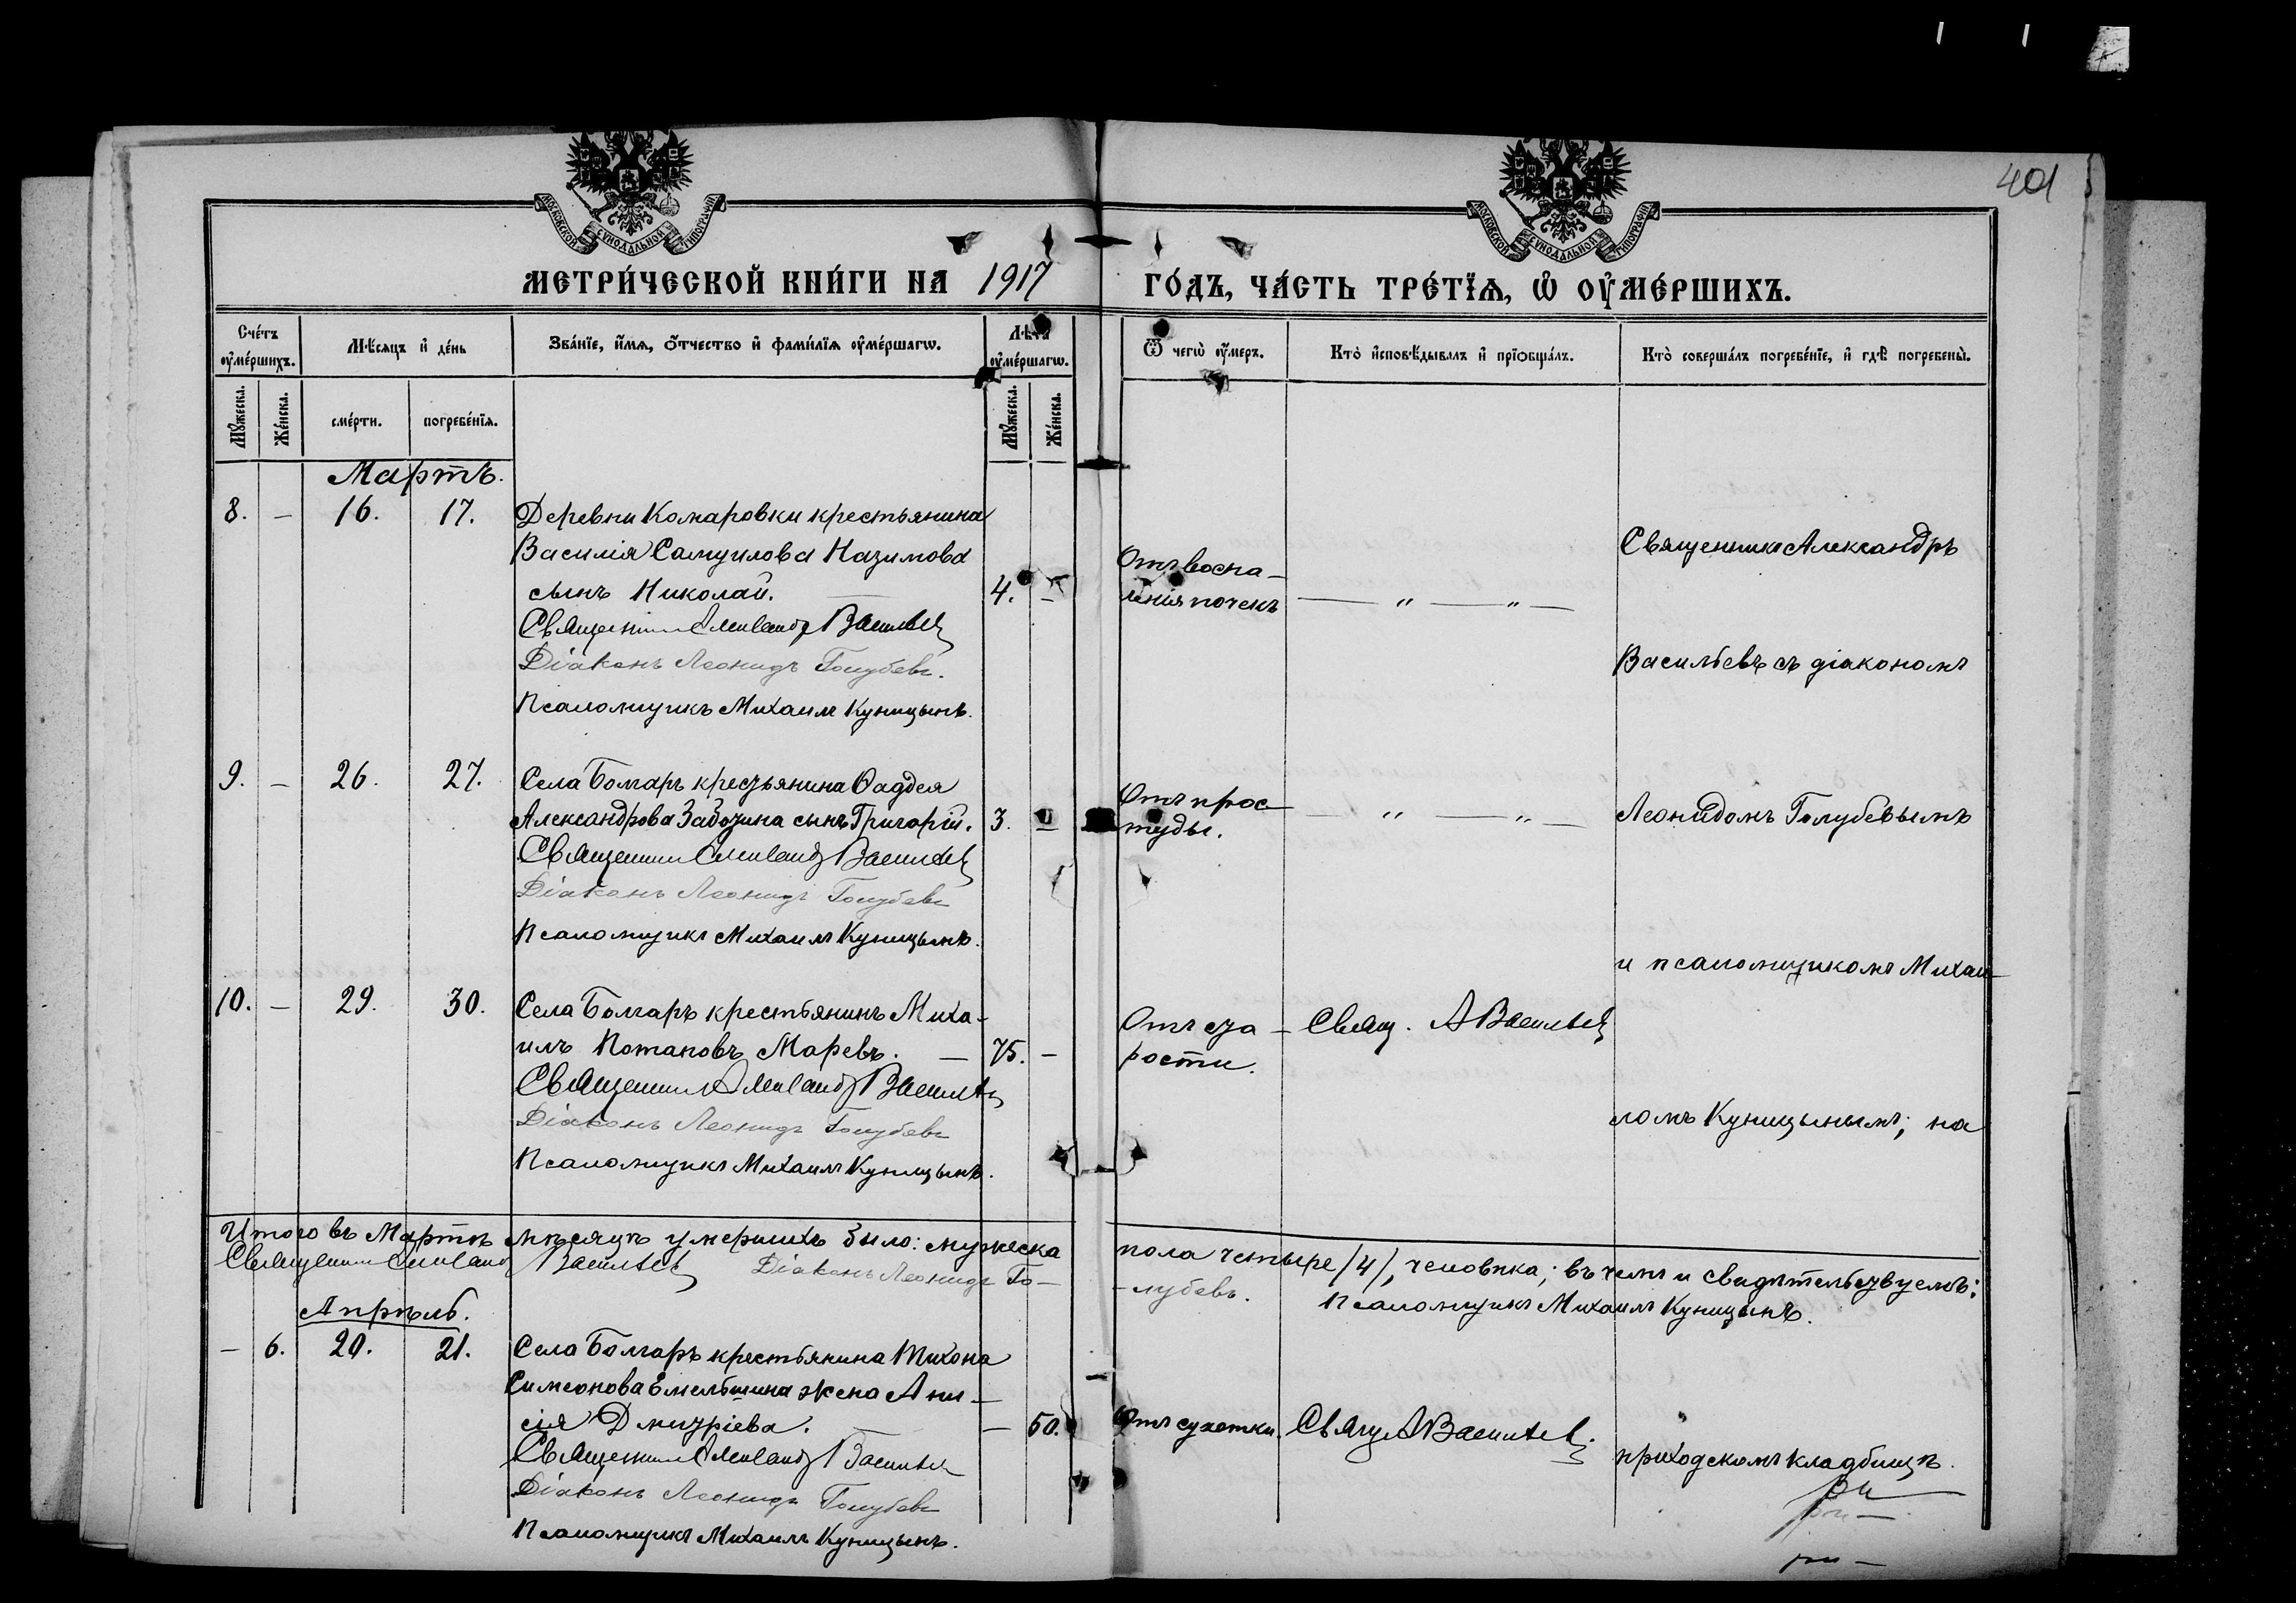 401
МОСКОВСКОЙ СѴНОДАЛЬНОЙ ТИПОГРАФІИ
МОСКОВСКОЙ СѴНОДАЛЬНОЙ ТИПОГРАФІИ
МЕТРИ́ЧЕСКОЙ КНИ́ГИ НА 1917 ГО́ДЪ, ЧА́СТЬ ТРЕ́ТЇѦ, Ѡ҆ ОУ҆МЕ́РШИХЪ.
Сче́тъ оу҆ме́ршихъ.
Мѣ́сяцъ и҆ де́нь
Зва́нїе, и҆́мѧ, ѻ҆́тчество и҆ фами́лїѧ оу҆ме́ршагѡ.
Лѣта оу҆ме́ршагѡ.
Ѿ чегѡ̀ оу҆́меръ.
Кто̀ и҆сповѣ́дывалъ и҆ прїѻбща́лъ.
Кто̀ соверша́лъ погребе́нїе, и҆ гдѣ̀ погребены̀.
Мꙋ́жеска.
Же́нска.
сме́рти.
погребе́нїѧ.
Мꙋ́жеска.
Же́нска.
Мартъ.
8. — 16. 17. Деревни Комаровки крестьянина
Василія Самуилова Назимова
сынъ Николай. — 4. —
Священникъ Александръ Васильевъ
Діаконъ Леонидъ Голубевъ.
Псаломщикъ Михаилъ Куницынъ.
Отъ воспа-
ленія почекъ — " — " —
Священникъ Александръ
Васильевъ съ діакономъ
9. — 26. 27. Села Болгаръ крестьянина Ѳаддея
Александрова Забозина сынъ Григорій. 3. —
Священникъ Александръ Васильевъ
Діаконъ Леонидъ Голубевъ
Псаломщикъ Михаилъ Куницынъ.
Отъ прос-
туды. — " — " —
Леонидомъ Голубевымъ
и псаломщикомъ Михаи-
10. — 29. 30. Села Болгаръ крестьянинъ Миха-
илъ Потаповъ Маревъ. — 75. —
Священникъ Александръ Васильевъ
Діаконъ Леонидъ Голубевъ
Псаломщикъ Михаилъ Куницынъ.
Отъ ста-
рости.
Свящ. А Васильевъ
ломъ Куницынымъ; на
Итого въ Мартѣ мѣсяцѣ умершихъ было: мужеска пола четыре /4/, человѣка; въ чемъ и свидѣтельствуемъ:
Священникъ Александръ Васильевъ Діаконъ Леонидъ Го-
-лубевъ. Псаломщикъ Михаилъ Куницынъ.
Апрѣль.
— 6. 20. 21. Села Болгаръ крестьянина Тихона
Симеонова Емельшина жена Ани-
сія Дмитріева. — 50.
Священникъ Александръ Васильевъ
Діаконъ Леонидъ Голубевъ
Псаломщикъ Михаилъ Куницынъ.
Отъ сухотки. Свящ А Васильевъ.
приходскомъ кладбищѣ.